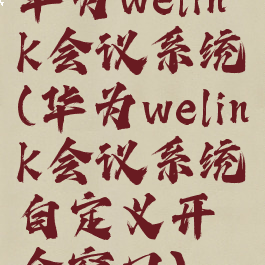 华为welin
k会议系统
(华为welin
k会议系统
自定义开
会窗口)